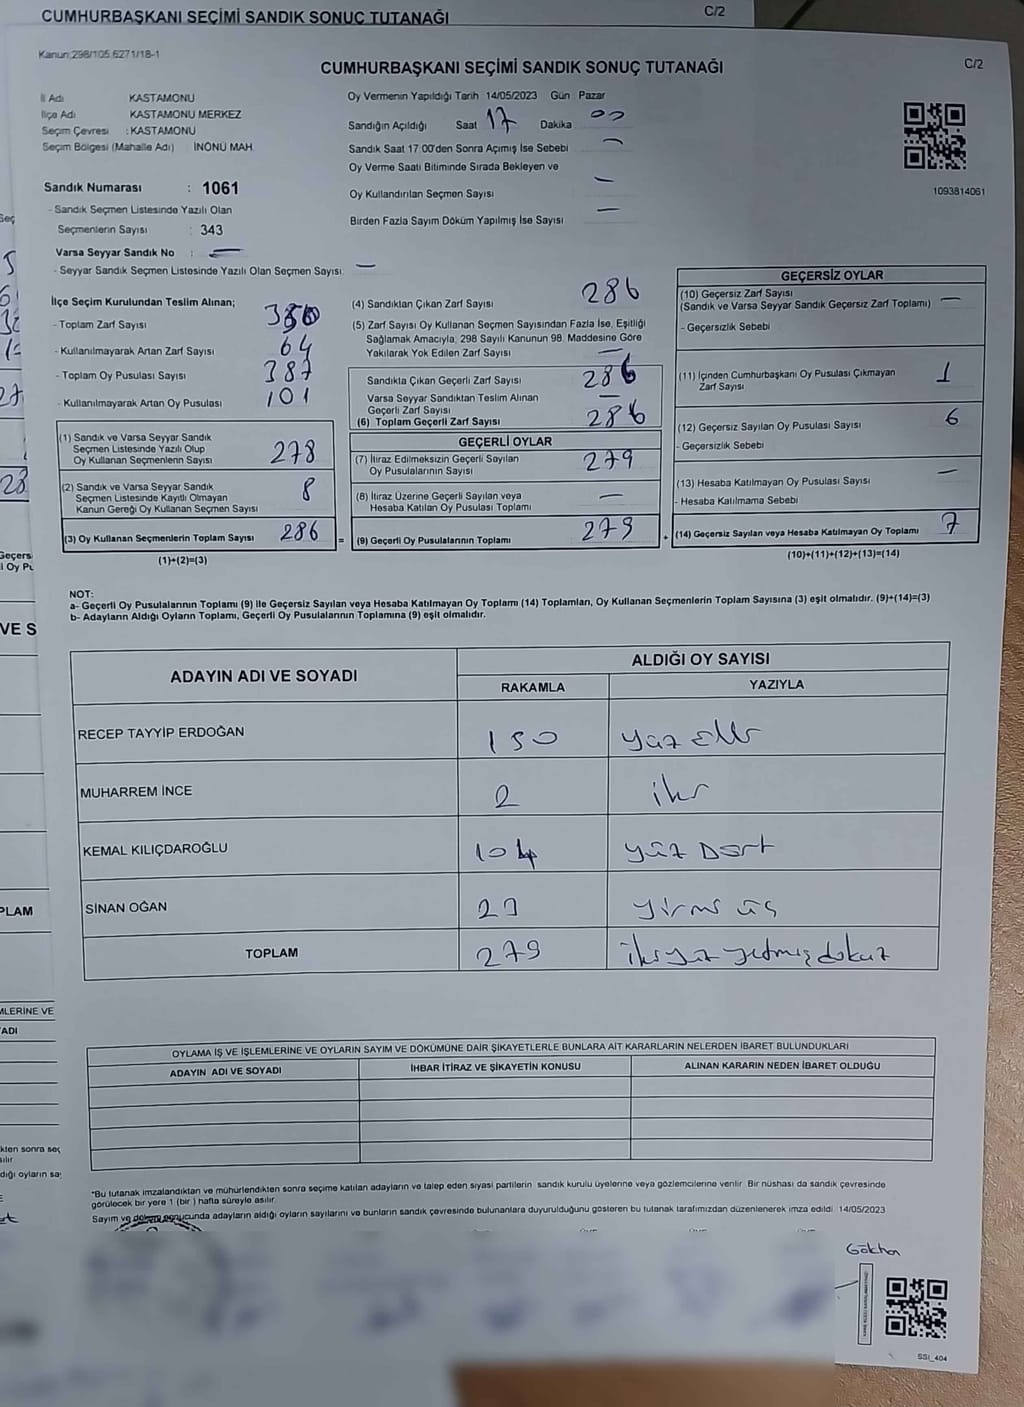 CUMHURBAŞKANI SEÇİMİ SANDIK SONUÇ TUTANAĞI
C/2
Kanun;298/105,6271/18-1
CUMHURBAŞKANI SEÇİMİ SANDIK SONUÇ TUTANAĞI
C/2
İl Adı KASTAMONU
İlçe Adı KASTAMONU MERKEZ
Seçim Çevresi : KASTAMONU
Seçim Bölgesi (Mahalle Adı) İNÖNÜ MAH.
Oy Vermenin Yapıldığı Tarih 14/05/2023 Gün Pazar
Sandığın Açıldığı Saat 17 Dakika 00
Sandık Saat 17:00'den Sonra Açımış İse Sebebi —
Oy Verme Saati Bitiminde Sırada Bekleyen ve
Oy Kullandırılan Seçmen Sayısı —
Birden Fazla Sayım Döküm Yapılmış İse Sayısı —
1093814061
Sandık Numarası : 1061
- Sandık Seçmen Listesinde Yazılı Olan
Seçmenlerin Sayısı : 343
Varsa Seyyar Sandık No : —
- Seyyar Sandık Seçmen Listesinde Yazılı Olan Seçmen Sayısı: —
İlçe Seçim Kurulundan Teslim Alınan;
- Toplam Zarf Sayısı 350
- Kullanılmayarak Artan Zarf Sayısı 64
- Toplam Oy Pusulası Sayısı 387
- Kullanılmayarak Artan Oy Pusulası 101
(1) Sandık ve Varsa Seyyar Sandık
Seçmen Listesinde Yazılı Olup
Oy Kullanan Seçmenlerin Sayısı 278
(2) Sandık ve Varsa Seyyar Sandık
Seçmen Listesinde Kayıtlı Olmayan
Kanun Gereği Oy Kullanan Seçmen Sayısı 8
(3) Oy Kullanan Seçmenlerin Toplam Sayısı 286
(1)+(2)=(3)
=
(4) Sandıktan Çıkan Zarf Sayısı 286
(5) Zarf Sayısı Oy Kullanan Seçmen Sayısından Fazla İse, Eşitliği
Sağlamak Amacıyla, 298 Sayılı Kanunun 98. Maddesine Göre
Yakılarak Yok Edilen Zarf Sayısı —
Sandıkta Çıkan Geçerli Zarf Sayısı 286
Varsa Seyyar Sandıktan Teslim Alınan
Geçerli Zarf Sayısı —
(6) Toplam Geçerli Zarf Sayısı 286
GEÇERLİ OYLAR
(7) İtiraz Edilmeksizin Geçerli Sayılan
Oy Pusulalarının Sayısı 279
(8) İtiraz Üzerine Geçerli Sayılan veya
Hesaba Katılan Oy Pusulası Toplamı —
(9) Geçerli Oy Pusulalarının Toplamı 279
+
GEÇERSİZ OYLAR
(10) Geçersiz Zarf Sayısı
(Sandık ve Varsa Seyyar Sandık Geçersiz Zarf Toplamı) —
- Geçersizlik Sebebi
(11) İçinden Cumhurbaşkanı Oy Pusulası Çıkmayan
Zarf Sayısı 1
(12) Geçersiz Sayılan Oy Pusulası Sayısı 6
- Geçersizlik Sebebi
(13) Hesaba Katılmayan Oy Pusulası Sayısı —
- Hesaba Katılmama Sebebi
(14) Geçersiz Sayılan veya Hesaba Katılmayan Oy Toplamı 7
(10)+(11)+(12)+(13)=(14)
NOT:
a- Geçerli Oy Pusulalarının Toplamı (9) ile Geçersiz Sayılan veya Hesaba Katılmayan Oy Toplamı (14) Toplamları, Oy Kullanan Seçmenlerin Toplam Sayısına (3) eşit olmalıdır. (9)+(14)=(3)
b- Adayların Aldığı Oyların Toplamı, Geçerli Oy Pusulalarının Toplamına (9) eşit olmalıdır.
ADAYIN ADI VE SOYADI
ALDIĞI OY SAYISI
RAKAMLA YAZIYLA
RECEP TAYYİP ERDOĞAN 150 yüz elli
MUHARREM İNCE 2 iki
KEMAL KILIÇDAROĞLU 104 yüz Dört
SİNAN OĞAN 23 yirmi üç
TOPLAM 279 ikiyüz yetmiş dokuz
OYLAMA İŞ VE İŞLEMLERİNE VE OYLARIN SAYIM VE DÖKÜMÜNE DAİR ŞİKAYETLERLE BUNLARA AİT KARARLARIN NELERDEN İBARET BULUNDUKLARI
ADAYIN ADI VE SOYADI İHBAR İTİRAZ VE ŞİKAYETİN KONUSU ALINAN KARARIN NEDEN İBARET OLDUĞU
*Bu tutanak imzalandıktan ve mühürlendikten sonra seçime katılan adayların ve talep eden siyasi partilerin sandık kurulu üyelerine veya gözlemcilerine verilir. Bir nüshası da sandık çevresinde
görülecek bir yere 1 (bir ) hafta süreyle asılır.
Sayım ve döküm sonucunda adayların aldığı oyların sayılarını ve bunların sandık çevresinde bulunanlara duyurulduğunu gösteren bu tutanak tarafımızdan düzenlenerek imza edildi. 14/05/2023
Gökhan
SSI_404